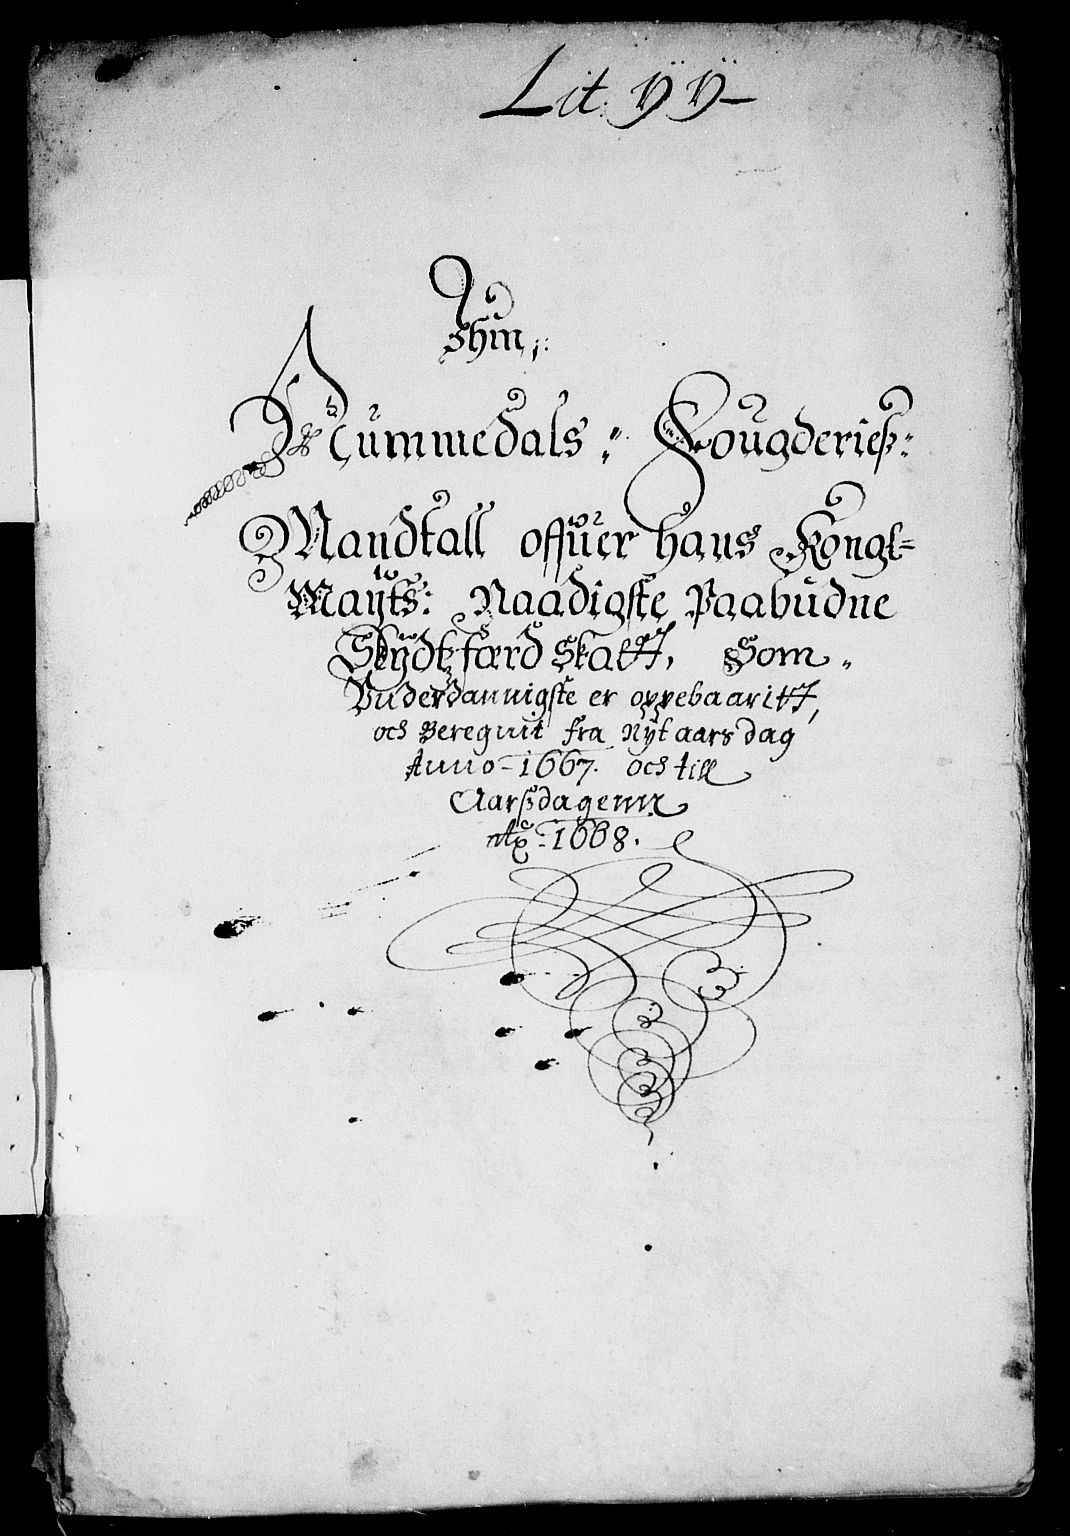 Lit: ÿÿ
Nummedals: Fougderies:
Mandtall offuer hans Kongl=
Maÿts: Naadigste Paabudne
Skÿdtzfærd Skatt, Som
Vnderdannigste er oppebaaritt,
och Beregnit fra Nÿtaarsdag
Anno 1667. och till
Aarsdagenn
1668.